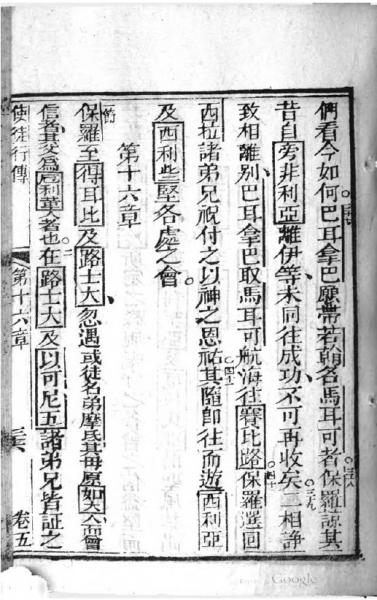 們看今如何巴耳拿巴願帶若翰名馬耳可者保羅諒其
昔自旁非利亞離伊等未同往成功不可再收矣二相諍
致相離別巴耳拿巴取馬耳可航海往賽比路保羅選回
西拉諸弟兄祝付之以神之恩祐其隨即往而遊西利亞
及西利些堅各處之會
第十六章
保羅至得耳比及路士大忽遇或徒名弟摩氏其母原如大人而會
信者其父為厄利革人者也在路士大及以可尼五諸弟兄皆証之
使徒行傳
第十六章
三六
卷五
Google